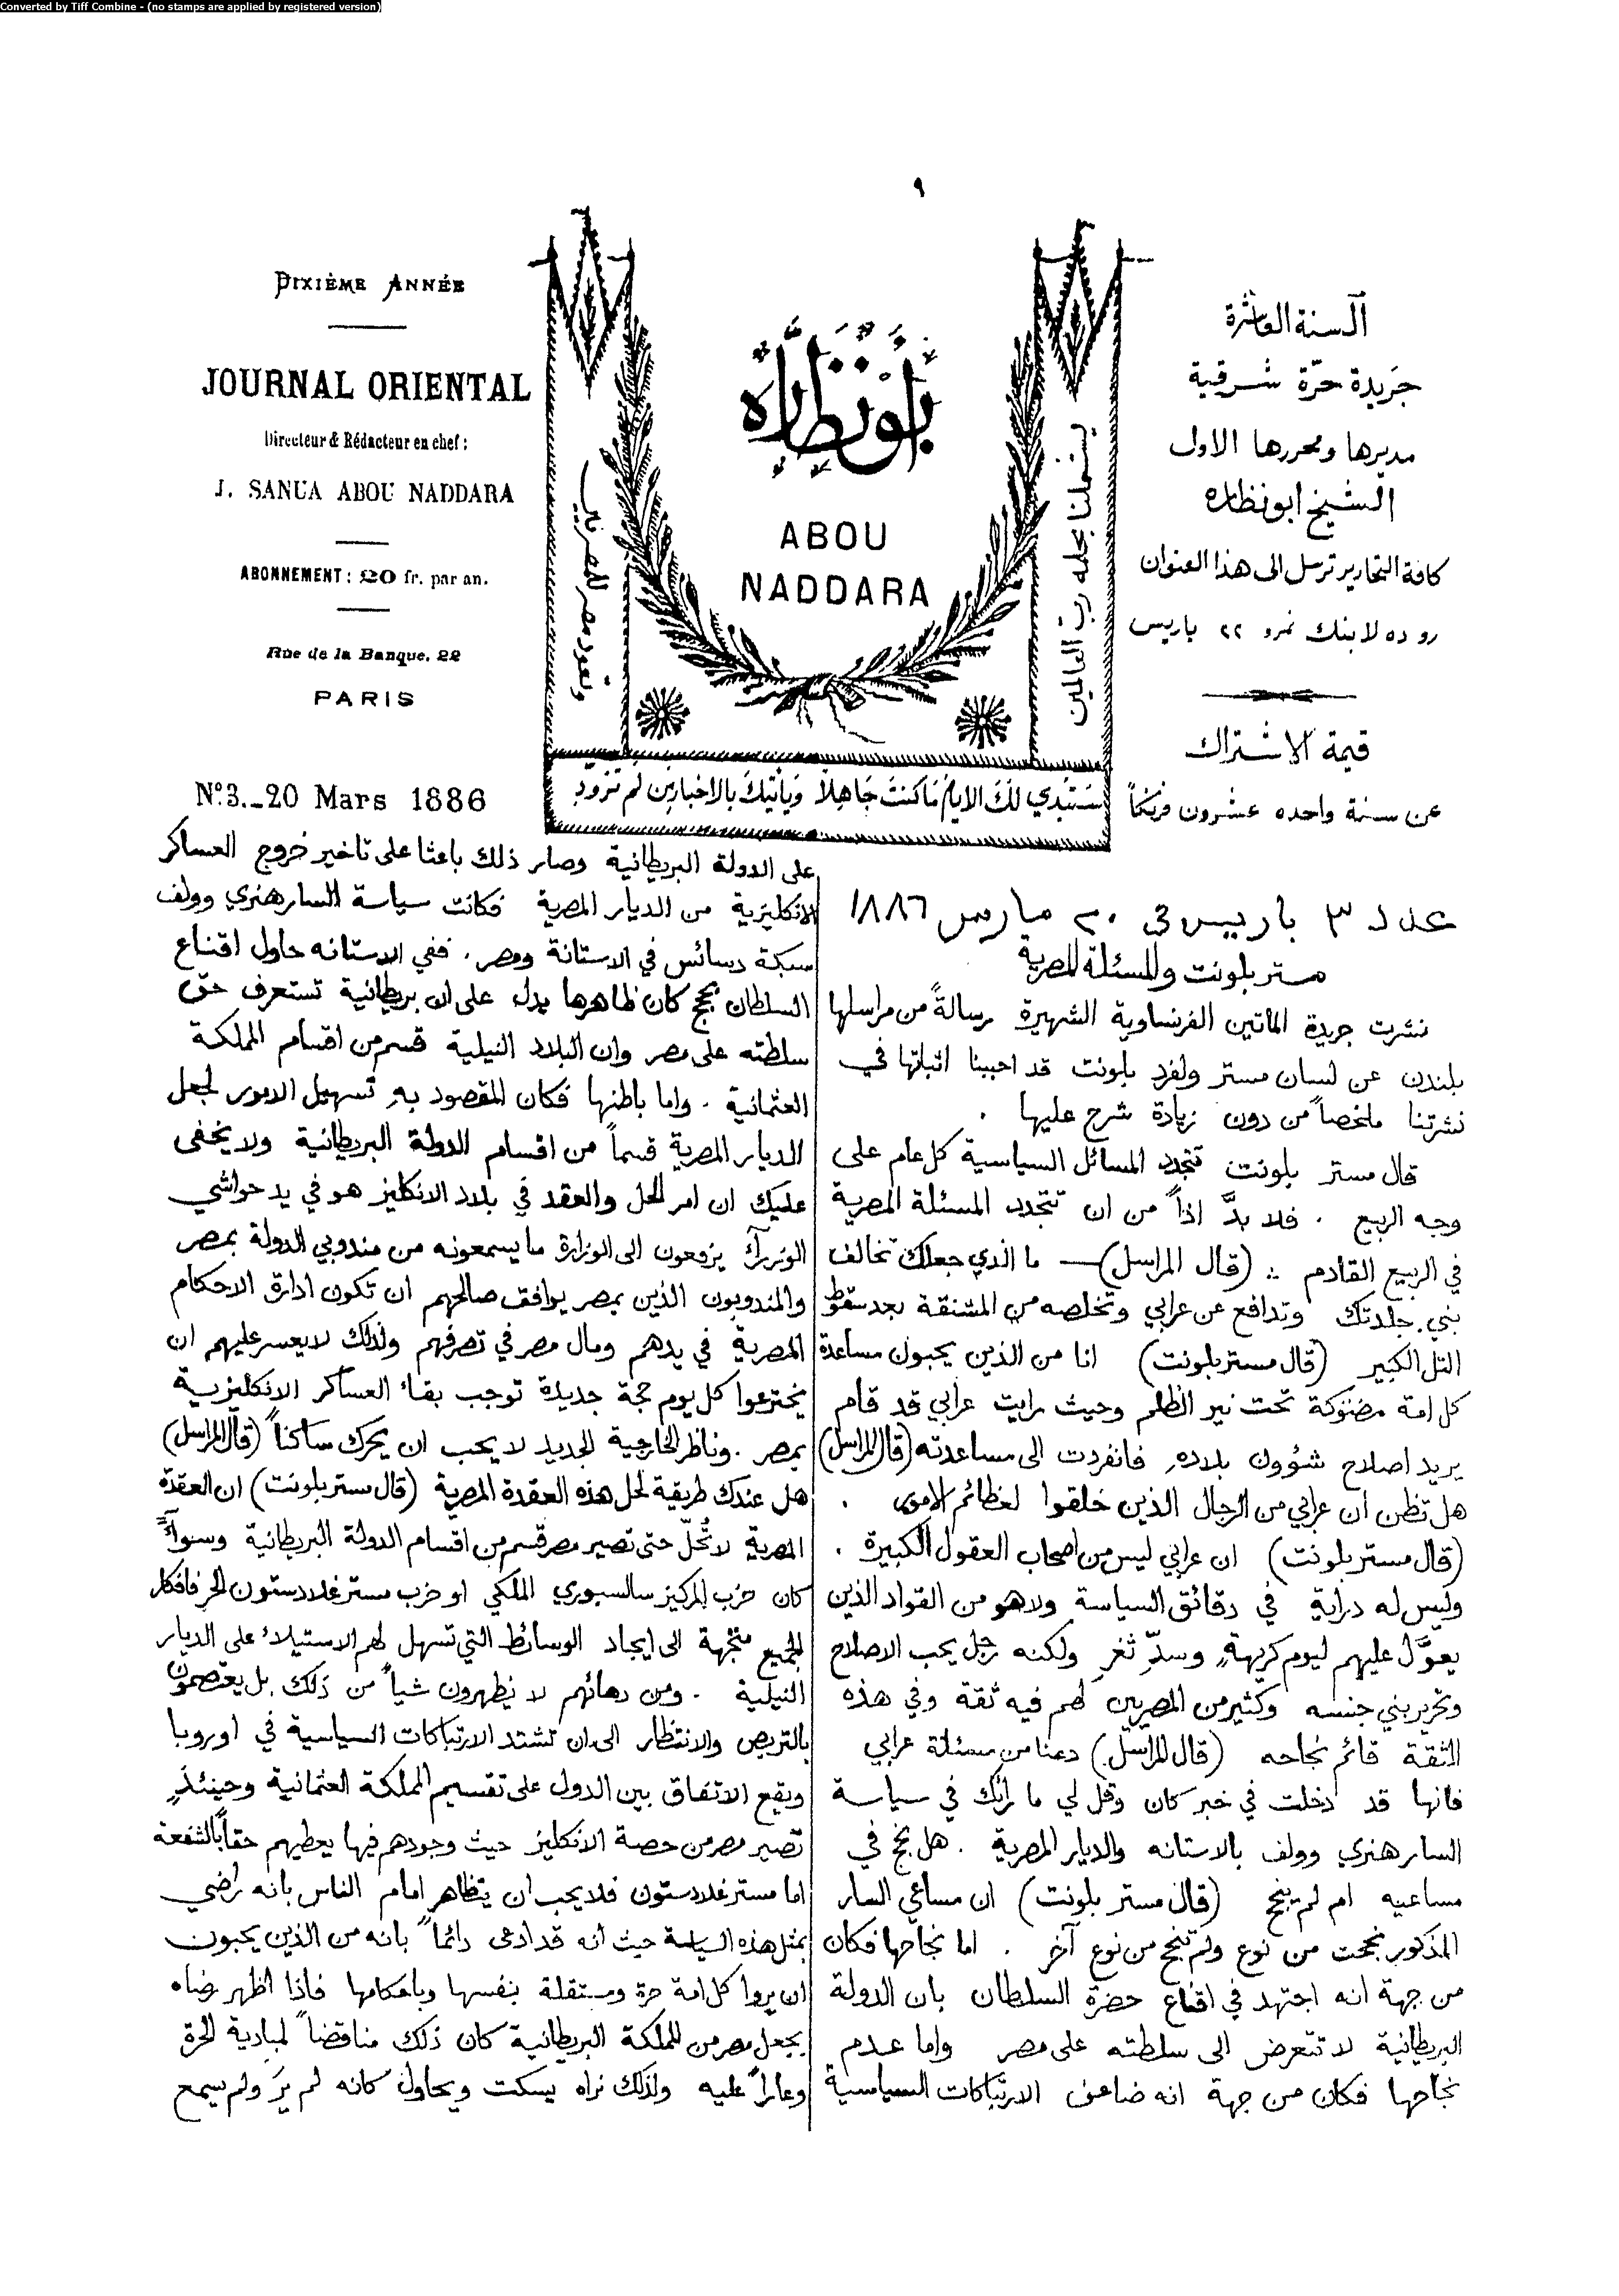 Converted by Tiff Combine - (no stamps are applied by registered version)
٩
DIXIÈME ANNÉE
JOURNAL ORIENTAL
Directeur & Rédacteur en chef:
J. SANUA ABOU NADDARA
ABONNEMENT: 20 fr. par an.
Rue de la Banque, 22
PARIS
Nº3._20 Mars 1886
أبو نظارة
ABOU
NADDARA
يشملنا بحلمه رب العالمين
وتعود مصر للمصريين
ستبدي لك الايام ما كنت جاهلا ويأتيك بالاخبار من لم تزود
السنة العاشرة
جريدة حرّة شرقية
مديرها ومحررها الاول
الشيخ ابو نظاره
كافة التحارير ترسل الى هذا العنوان
رو ده لا بنك نمرو ٢٢ باريس
قيمة الاشتراك
عن سنة واحده عشرون فرنكاً
عدد ٣ باريس في ٢٠ مارس ١٨٨٦
مستر بلونت والمسئلة المصرية
نشرت جريدة الماتين الفرنساوية الشهيرة رسالةً من مراسلها
بلندن عن لسان مستر ولفرد بلونت قد احببنا اثباتها في
نشرتنا ملخصاً من دون زيادة شرح عليها .
قال مستر بلونت تتجدد المسائل السياسية كل عام على
وجه الربيع . فلا بدَّ اذاً من ان تتجدد المسئلة المصرية
في الربيع القادم (قال المراسل) — ما الذي جعلك تخالف
بني جلدتك وتدافع عن عرابي وتخلصه من المشنقة بعد سقوط
التل الكبير (قال مستر بلونت) انا من الذين يحبون مساعدة
كل امة مضنوكة تحت نير الظلم وحيث رايت عرابي قد قام
يريد اصلاح شؤون بلاده فانفردت الى مساعدته (قال المراسل)
هل تظن ان عرابي من الرجال الذين خلقوا لعظائم الامور .
(قال مستر بلونت) ان عرابي ليس من اصحاب العقول الكبيرة .
وليس له دراية في دقائق السياسة ولا هو من القواد الذين
يعوَّل عليهم ليوم كريهةٍ وسدِّ ثغرٍ ولكنه رجل يحب الاصلاح
وتحرير بني جنسه وكثير من المصريين لهم فيه ثقة وفي هذه
الثقة قائم نجاحه (قال المراسل) دعنا من مسئلة عرابي
فانها قد دخلت في خبر كان وقل لي ما رأيك في سياسة
السار هنري وولف بالاستانه والديار المصرية . هل نجح في
مساعيه ام لم ينجح (قال مستر بلونت) ان مساعي السار
المذكور نجحت من نوع ولم تنجح من نوع آخر . اما نجاحها فكان
من جهة انه اجتهد في اقناع حضرة السلطان بان الدولة
البريطانية لا تتعرض الى سلطته على مصر واما عدم
نجاحها فكان من جهة انه ضاعف الارتباكات السياسية
على الدولة البريطانية وصار ذلك باعثا على تاخير خروج العساكر
الانكليزية من الديار المصرية فكانت سياسة السار هنري وولف
سبكة دسائس في الاستانة ومصر . ففي الاستانه حاول اقناع
السلطان بحجج كان ظاهرها يدل على ان بريطانية تستعرف حق
سلطته على مصر وان البلاد النيلية قسم من اقسام المملكة
العثمانية . واما باطنها فكان المقصود به تسهيل الامور لجعل
الديار المصرية قسماً من اقسام الدولة البريطانية ولا يخفى
عليك ان امر الحل والعقد في بلاد الانكليز هو في يد حواشي
الوزراء يرفعون الى الوزارة ما يسمعونه من مندوبي الدولة بمصر
والمندوبون الذين بمصر يوافق صالحهم ان تكون ادارة الاحكام
المصرية في يدهم ومال مصر في تصرفهم ولذلك لا يعسر عليهم ان
يخترعوا كل يوم حجة جديدة توجب بقاء العساكر الانكليزية
بمصر . وناظر الخارجية الجديد لا يحب ان يحرك ساكناً (قال المراسل)
هل عندك طريقة لحل هذه العقدة المصرية (قال مستر بلونت) ان العقدة
المصرية لا تُحلّ حتى تصير مصر قسم من اقسام الدولة البريطانية وسواءً
كان حزب المركيز سالسبوري الملكي او حزب مستر غلادستون الحر فافكار
الجميع متجهة الى ايجاد الوسائط التي تسهل لهم الاستيلاء على الديار
النيلية . ومن دهائهم لا يظهرون شياً من ذلك . بل يعتصمون
بالتربص والانتظار الى ان تشتد الارتباكات السياسية في اوروبا
ويقع الاتفاق بين الدول على تقسيم المملكة العثمانية وحينئذٍ
تصير مصر من حصة الانكليز حيث وجودهم فيها يعطيهم حقاً بالشفعة
اما مستر غلادستون فلا يحب ان يتظاهر امام الناس بانه راضي
بمثل هذه السياسة حيث انه قد ادعى دائماً بانه من الذين يحبون
ان يروا كل امة حرة ومستقلة بنفسها وباحكامها فاذا اظهر رضاه
بجعل مصر من المملكة البريطانية كان ذلك مناقضاً لمبادية الحرة
وعاراً عليه ولذلك نراه يسكت ويحاول كانه لم يرَ ولم يسمع